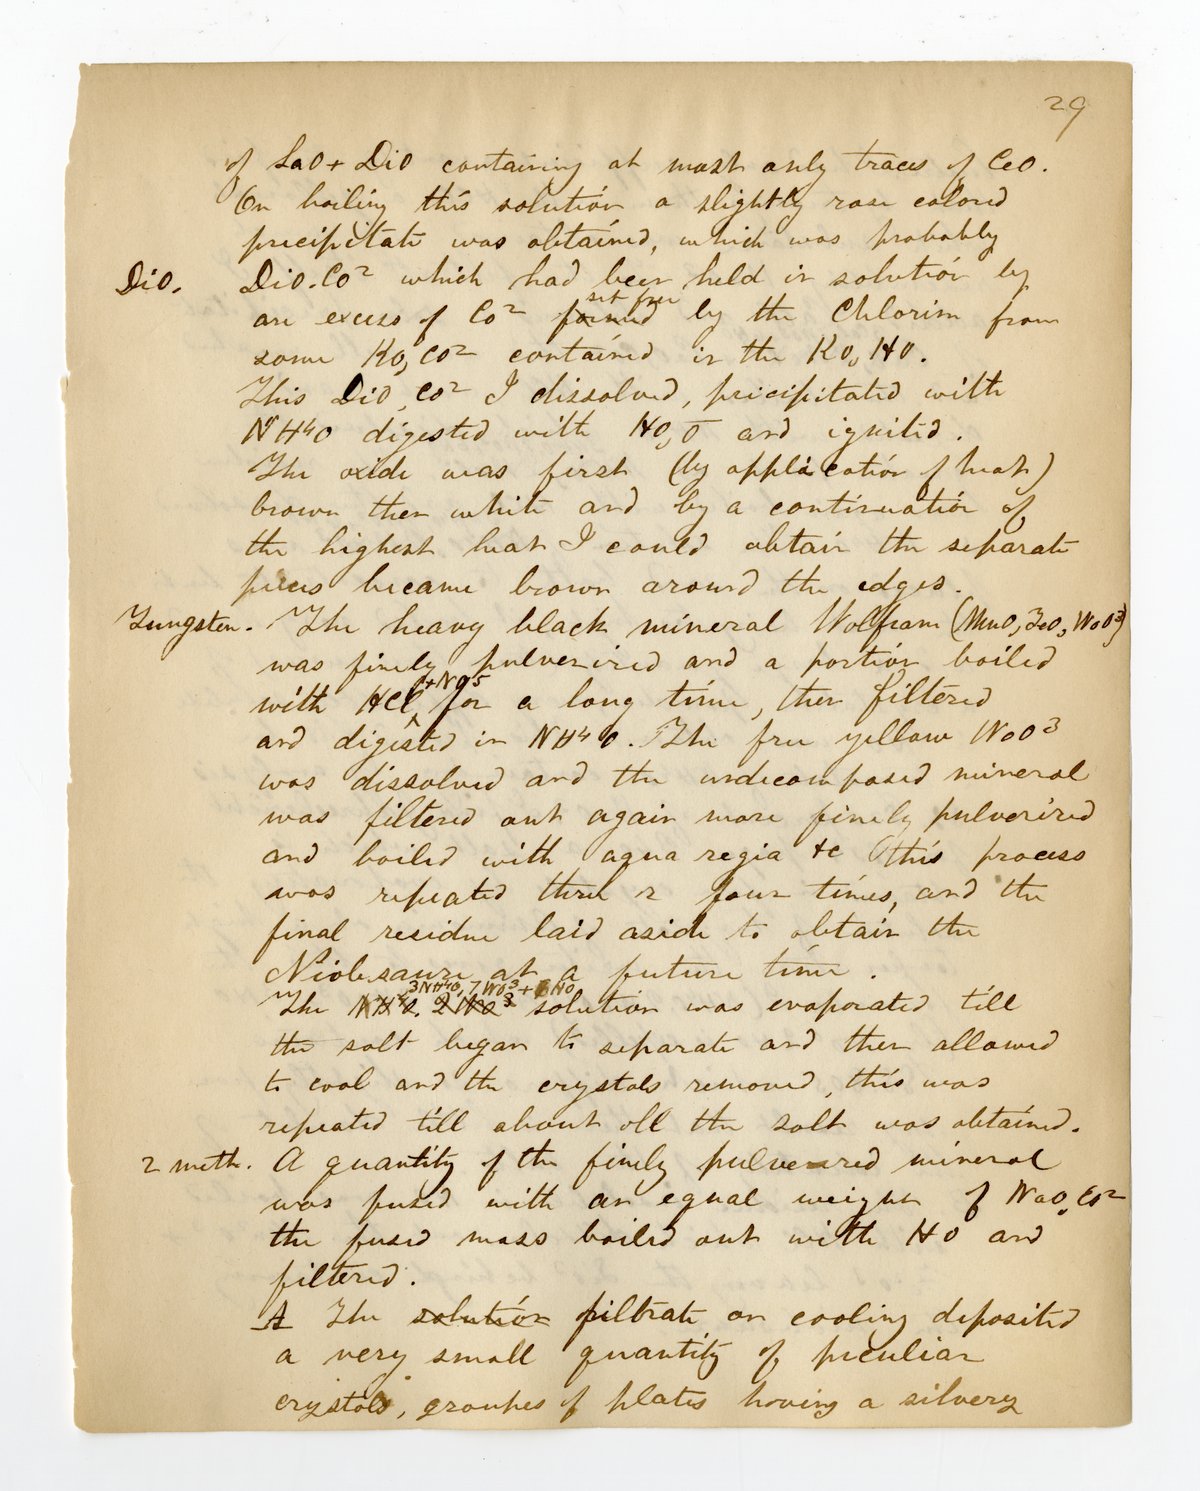 29
of LaO + DiO containing at most only traces of CeO.
On boiling this solution a slightly rose colored
precipitate was obtained, which was probably
DiO. DiO.Co² which had been held in solution by
an excess of Co² formed set free by the Chlorine from
some KO,CO² contained in the KO,HO.
This DiO,CO² I dissolved, precipitated with
NH⁴O digested with HO,O and ignited.
The oxide was first (by application of heat)
brown then white and by a continuation of
the highest heat I could obtain the separate
pieces became brown around the edges.
Tungsten. The heavy black mineral Wolfram (MnO,FeO,WoO³)
was finely pulverized and a portion boiled
with HCl +NO⁵ for a long time, then filtered
and digested in NH⁴O. The free yellow WoO³
was dissolved and the undecomposed mineral
was filtered out again more finely pulverized
and boiled with aqua regia &c this process
was repeated three or four times, and the
final residue laid aside to obtain the
Niobsaure at a future time.
3NH⁴O,7WO³+6HO
The NH⁴O.2WO³ solution was evaporated till
the salt began to separate and then allowed
to cool and the crystals removed, this was
repeated till about all the salt was obtained.
2 meth. A quantity of the finely pulverized mineral
was fused with an equal weight of NaO,CO²
the fused mass boiled out with HO and
filtered.
A The solution filtrate on cooling deposited
a very small quantity of peculiar
crystals, groupes of plates having a silvery